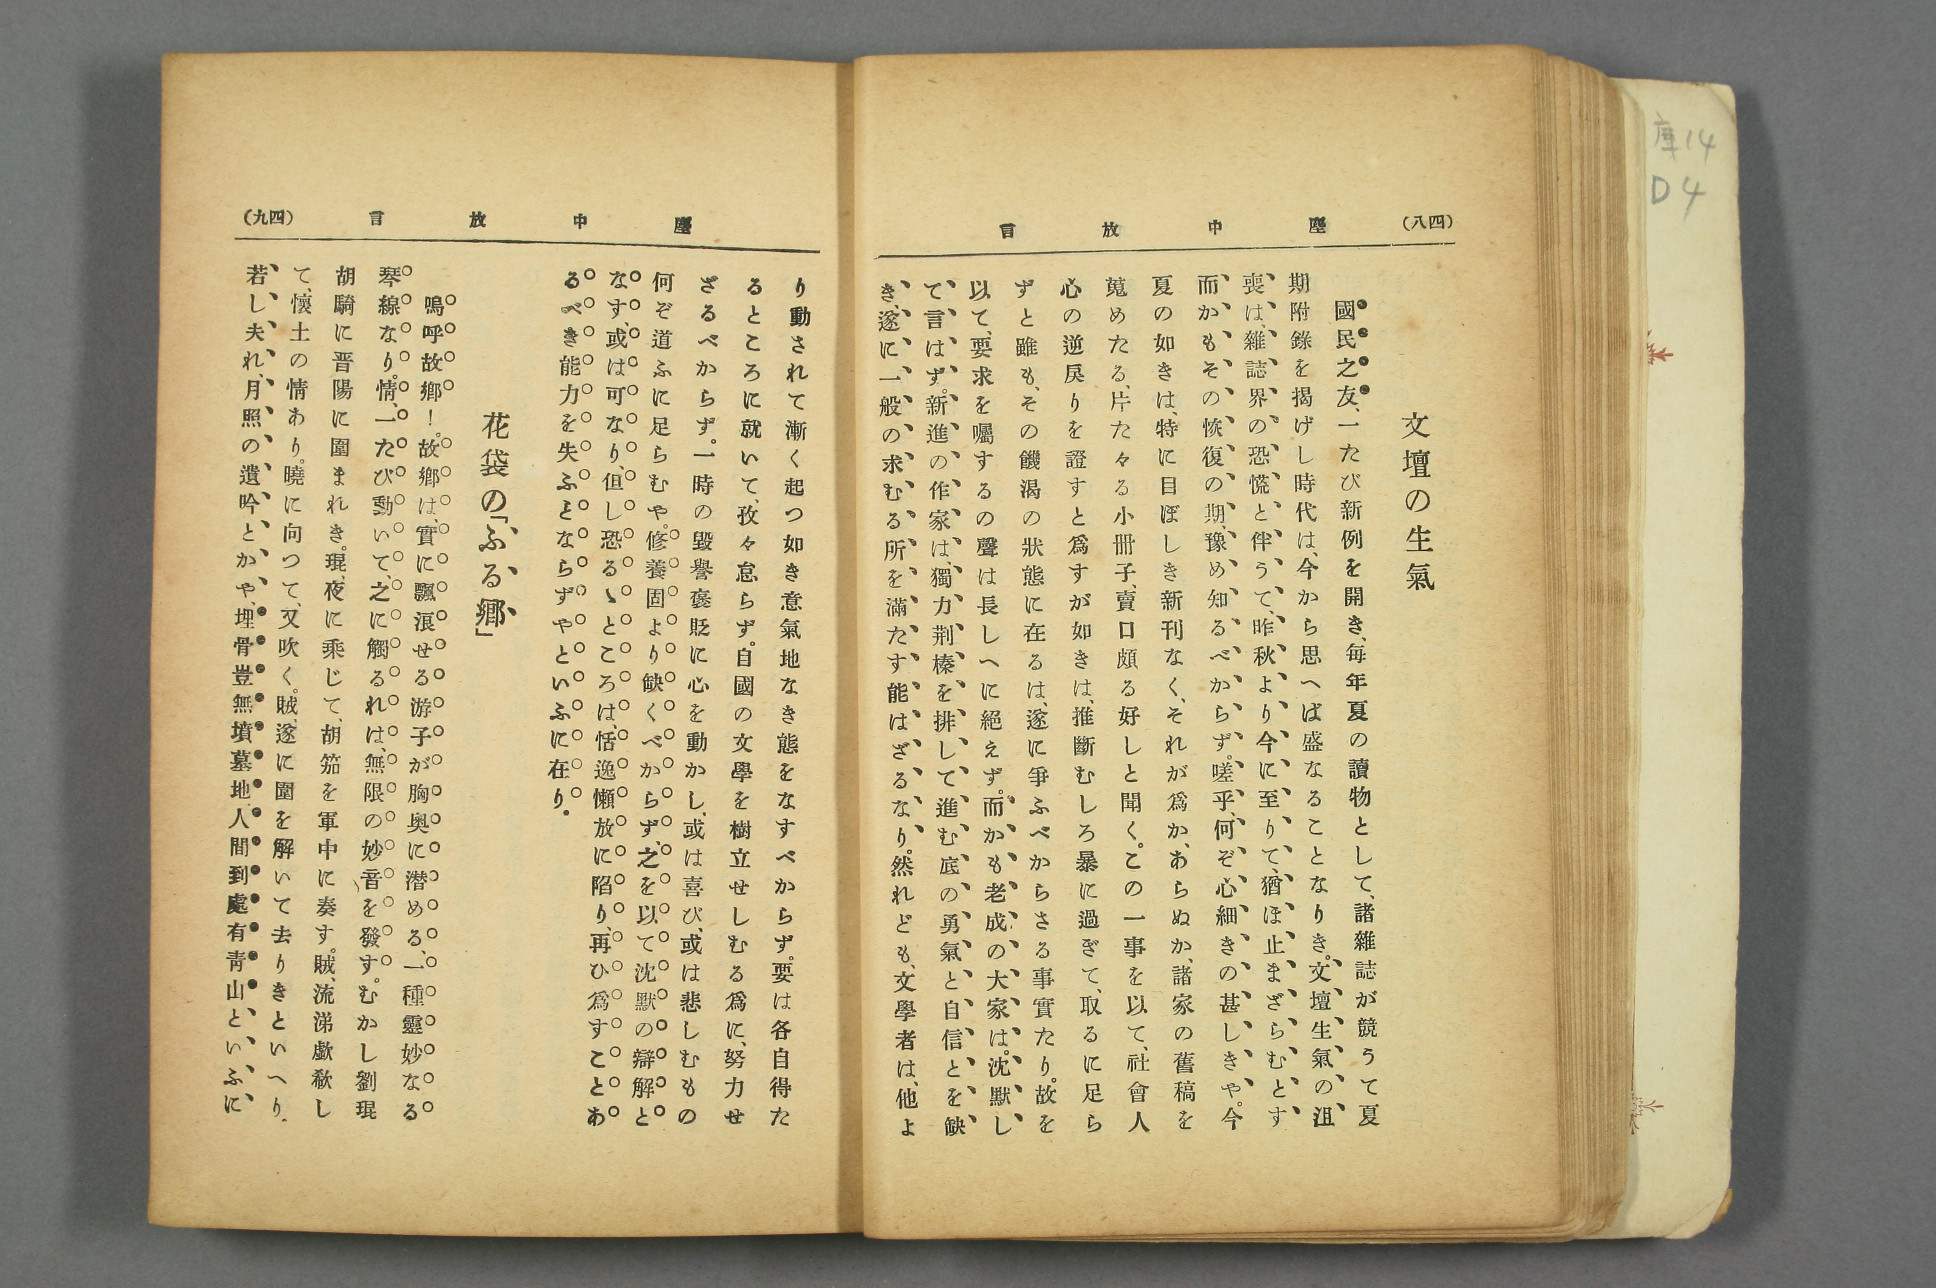 庫14
D4
(四八)
塵中放言
文壇の生氣
國民之友、一たび新例を開き、每年夏の讀物として、諸雜誌が競うて夏
期附錄を揭げし時代は、今から思へば盛なることなりき。文壇生氣の沮
喪は、雜誌界の恐慌と伴うて、昨秋より今に至りて、猶ほ止まざらむとす
而かもその恢復の期、豫め知るべからず。嗟乎、何ぞ心細きの甚しきや。今
夏の如きは、特に目ぼしき新刊なく、それが爲か、あらぬか、諸家の舊稿を
蒐めたる、片た々る小冊子、賣口頗る好しと聞く。この一事を以て、社會人
心の逆戾りを證すと爲すが如きは、推斷むしろ暴に過ぎて、取るに足ら
ずと雖も、その饑渴の狀態に在るは、遂に爭ふべからさる事實たり。故を
以て、要求を囑するの聲は長しへに絕えず。而かも老成の大家は。沈默し
て言はず。新進の作家は、獨力荆榛を排して進む底の勇氣と自信とを缺
き、遂に一般の求むる所を滿たす能はざるなり。然れども、文學者は、他よ
塵中放言
(四九)
り動されて漸く起つ如き意氣地なき態をなすべからず。要は各自得た
るところに就いて、孜々怠らず。自國の文學を樹立せしむる爲に、努力せ
ざるべからず。一時の毀譽褒貶に心を動かし、或は喜び、或は悲しむもの
何ぞ道ふに足らむや。修養固より缺くべからず、之を以て沈默の辯解と
なす、或は可なり、但し恐るゝところは、恬逸懶放に陷り、再ひ爲すことあ
るべき能力を失ふことならずやといふに在り。
花袋の「ふる鄕」
嗚呼故鄕！。故鄕は、實に飄浪せる游子が胸奧に潛める、一種靈妙なる
琴線なり。情、一たび動いて、之に觸るれは、無限の妙音を發す。むかし劉琨
胡騎に晋陽に圍まれき。琨、夜に乘じて、胡笳を軍中に奏す。賊、流涕歔欷し
て、懷土の情あり。曉に向つて、又吹く。賊、遂に圍を解いて去りきといへり。
若し夫れ、月照の遺吟とかや、埋骨豈無墳墓地、人間到處有靑山といふに